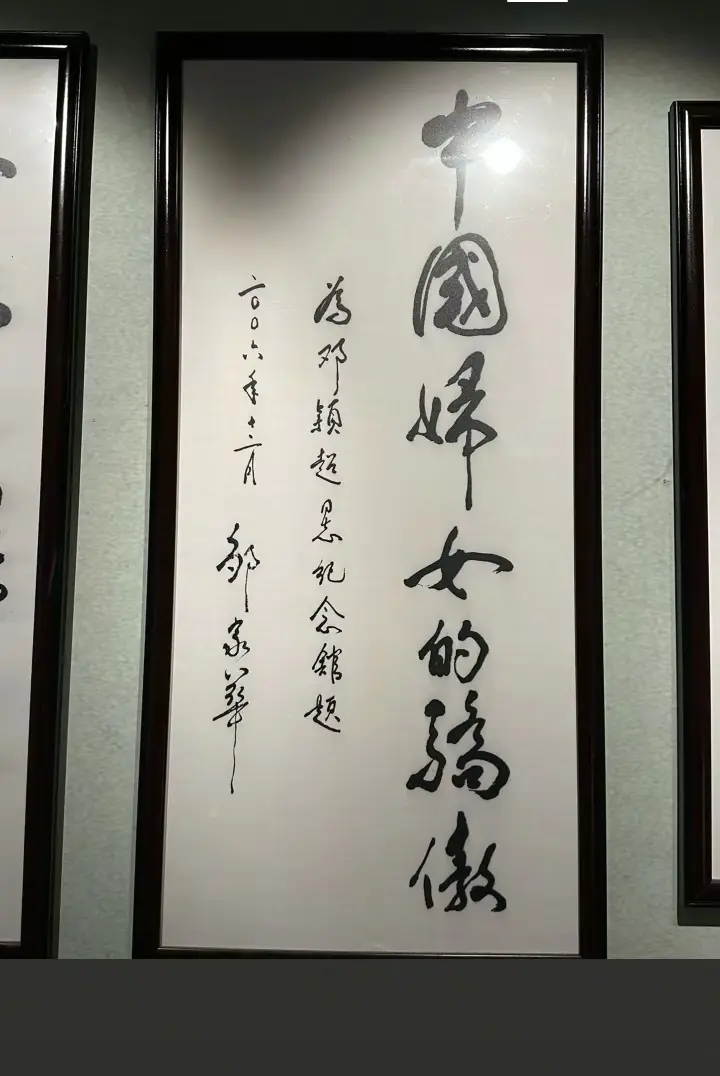 中國婦女的驕傲
為邓颖超纪念館題
二〇〇六年十二月 邹家華